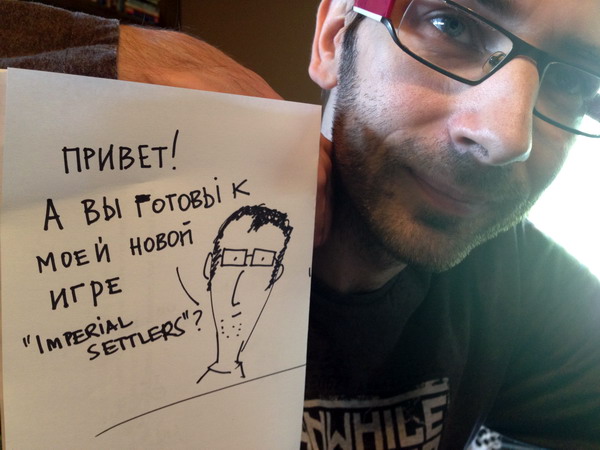 ПРИВЕТ!
А ВЫ ГОТОВЫ К
МОЕЙ НОВОЙ
ИГРЕ
"IMPERIAL
SETTLERS"?